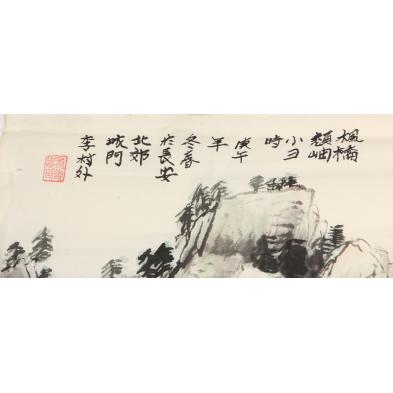 楓橋
頹岫
小又
時
庚午
年
冬春
於長安
北郊
城門
李村外